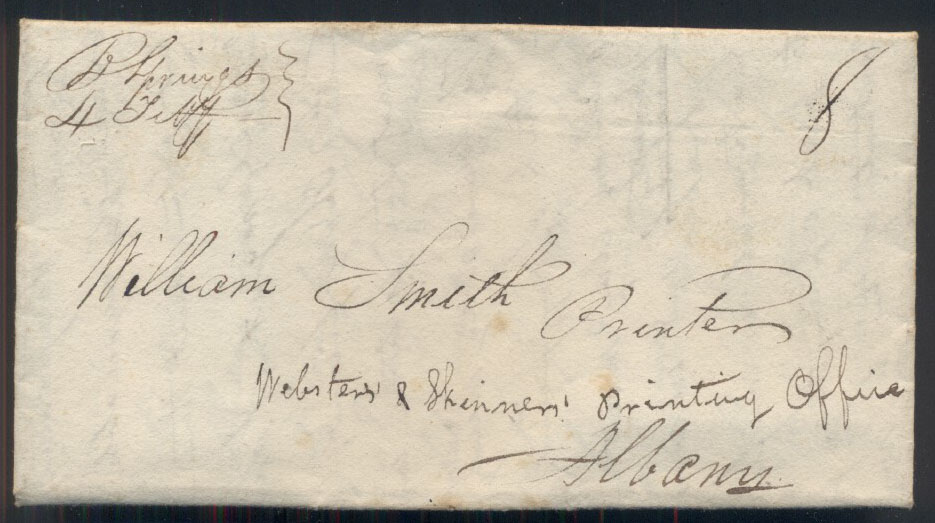 B Springs
4 Feby
8
William Smith Printer
Websters & Skinners' Printing Office
Albany